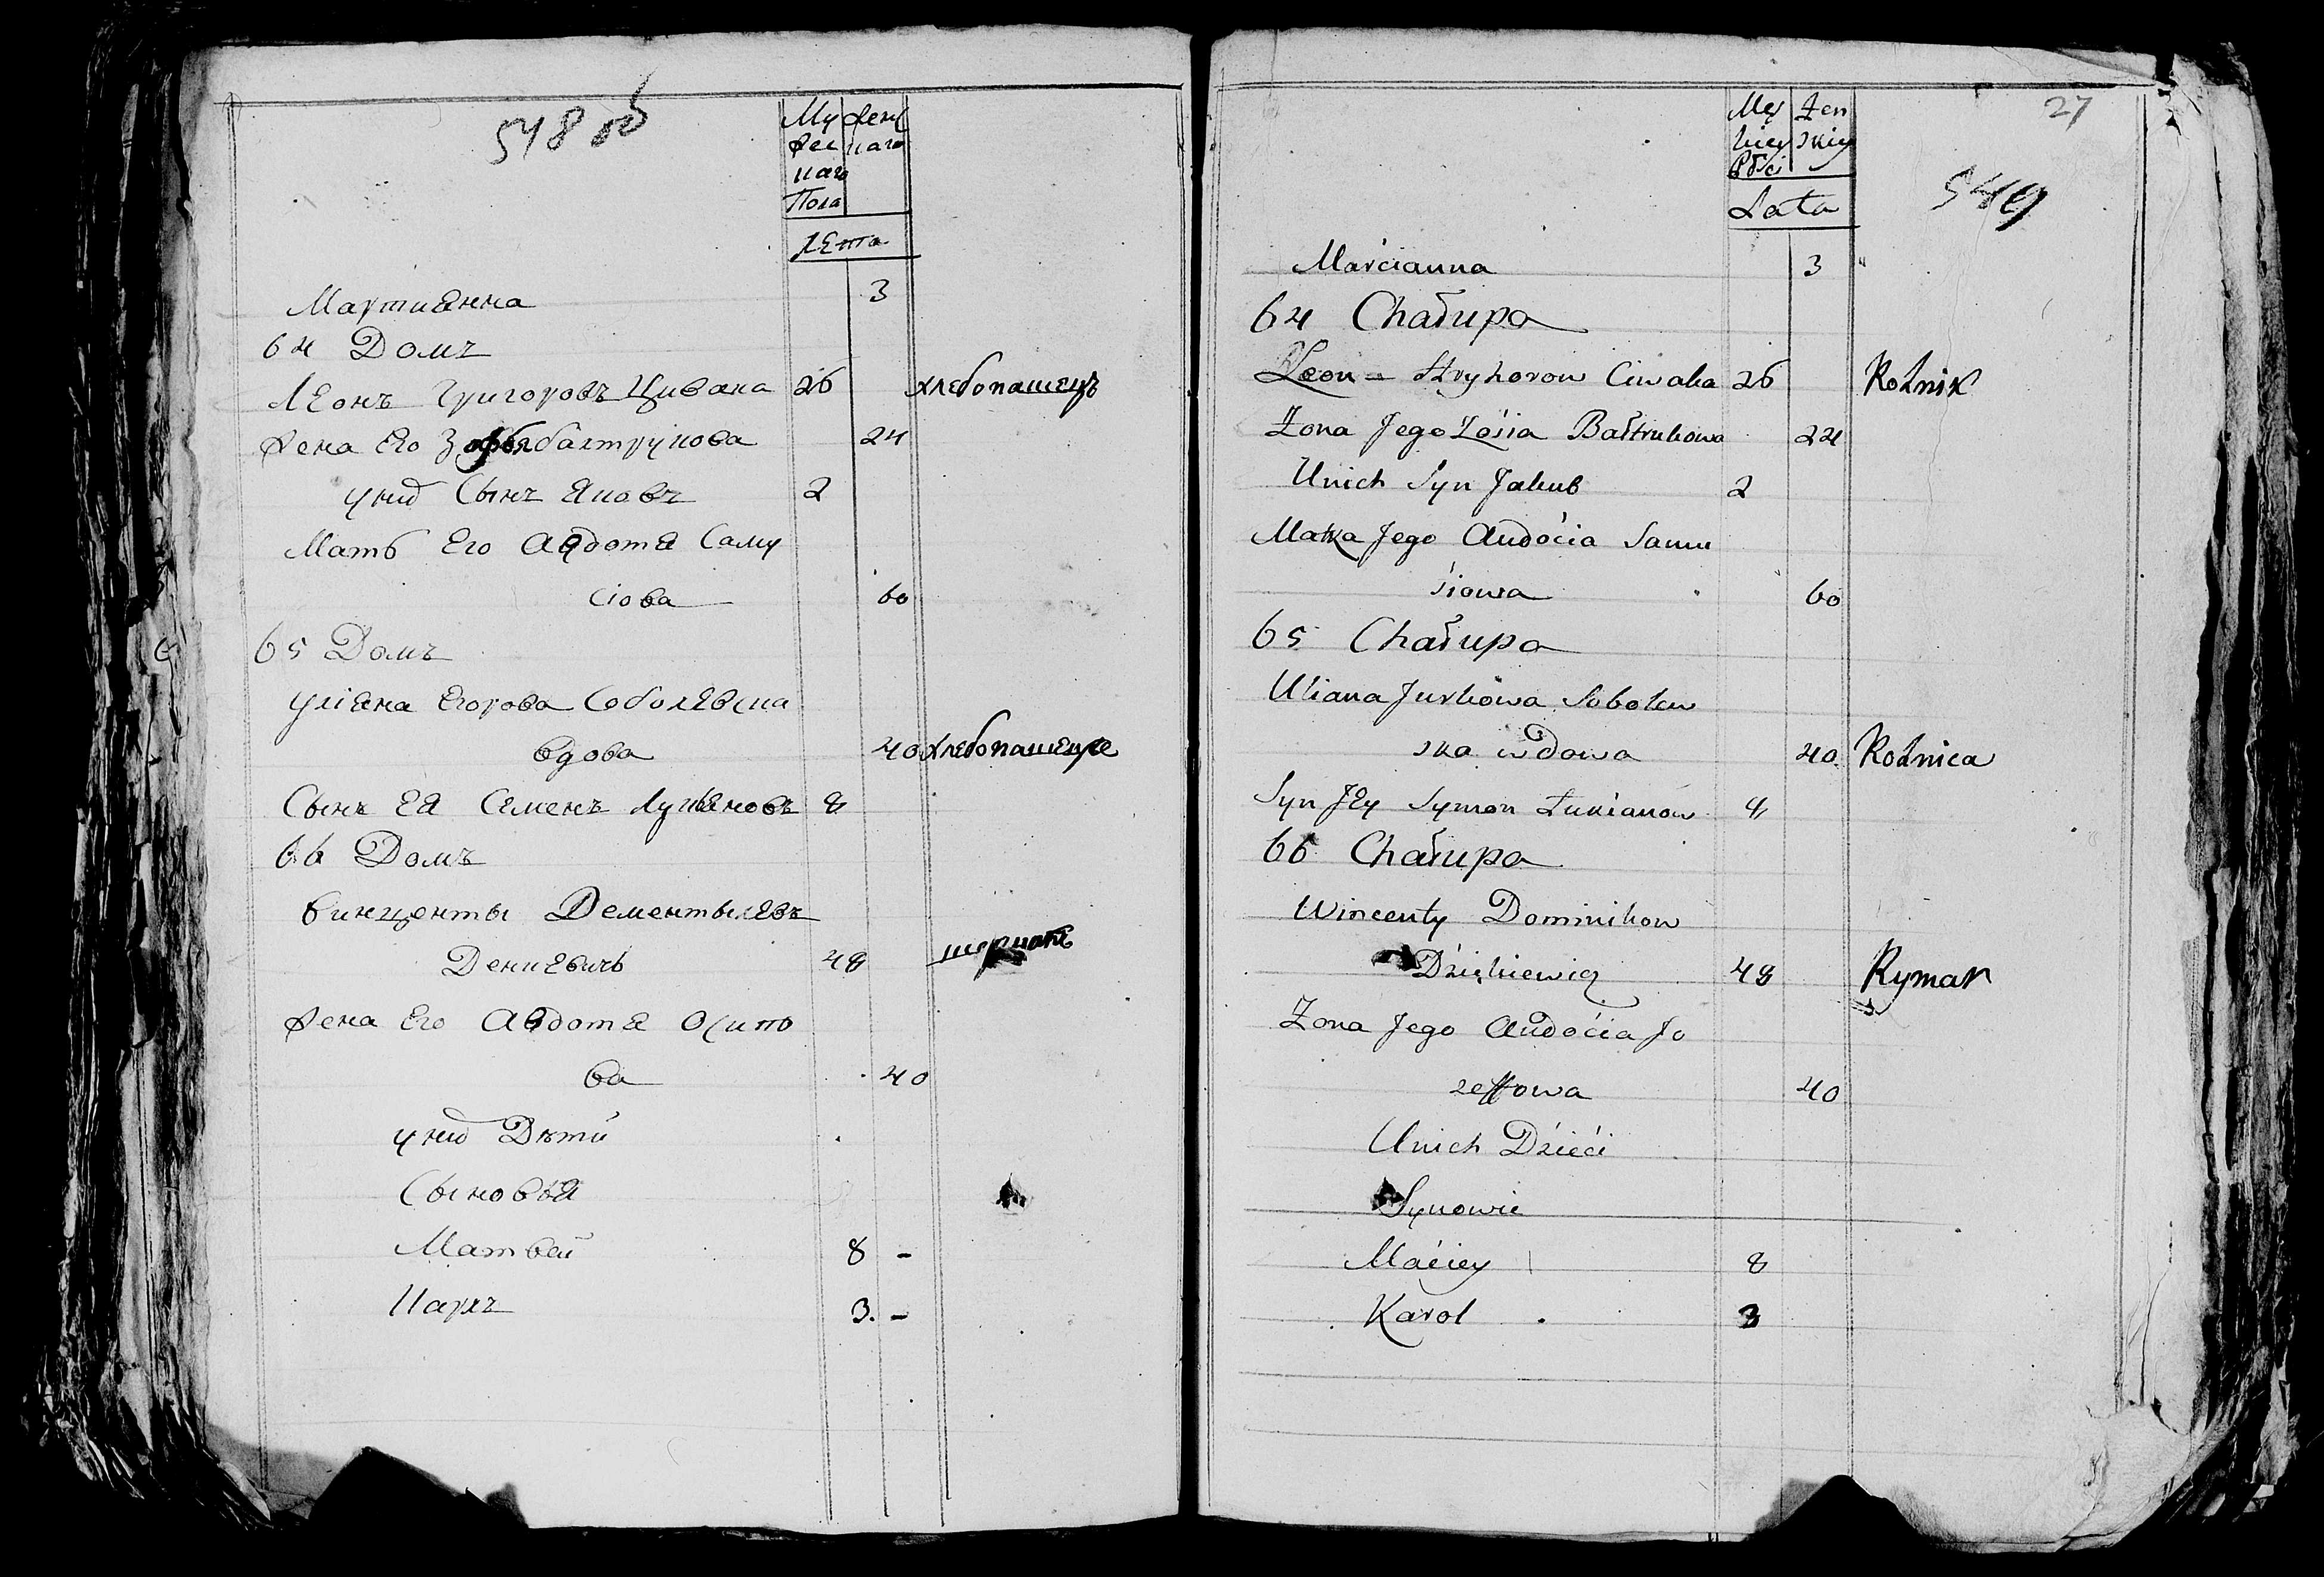 548 об
Му Женс
жес наго
наго
Пола
Лѣта
Мартиянна 3
64 Домъ
Леонъ Григоровъ Цивака 26 хлебопашецъ
Жена Его Зофья балтрукова 24
у нид Сынъ Яковъ 2
Мать Его Авдотя Саму
сіова 60
65 Домъ
Уліяна Егорова Соболевска
вдова 40 хлебопашецъ
Сынъ Ея Семенъ Лукьяновъ 8
66 Домъ
Винценты Дементьяевъ
Денкевичь 48
Жена Его Авдотя Осипо
ва 40
у нид Дѣти
Сыновья
Матвей 8 -
Карлъ 3. -
27
549
Męz Żen
kiey skiey
Płci
Lata
Marcianna 3 "
64 Chałupa
Leon Hryhorow Ciwaka 26 Rolnik
Żona Jego Zosia Bałtrukowa 24
Unich Syn Jakub 2
Matka Jego Audocia Samu
siowa 60
65 Chałupa
Uliana Jurkowa Sobolew
ska wdowa 40. Rolnica
Syn Jey Symon Łukianow 8
66 Chałupa
Wincenty Dominikow
Dzienkiewicz 48 Rymar
Żona Jego Audocia Jo
zeffowa 40
Unich Dzieci
Synowie
Maciey 8
Karol 3